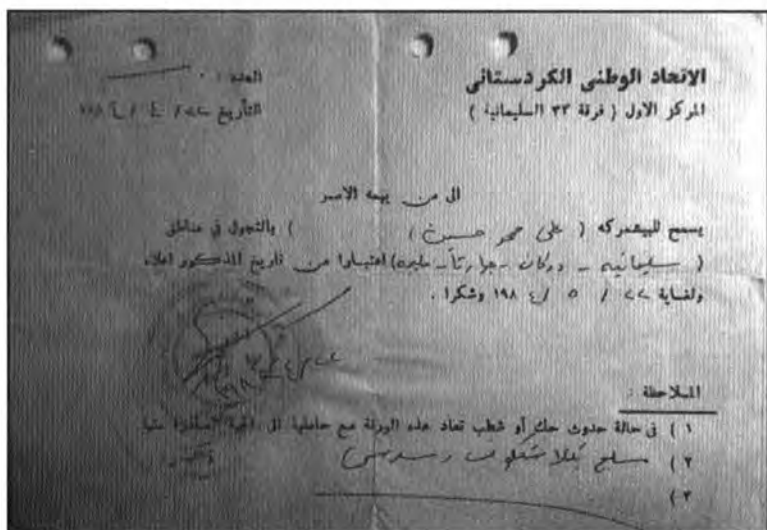 الاتحاد الوطني الكردستاني
المركز الاول ( فرقة ٣٣ السليمانية )
العدد :
التأريخ ٢٢ / ٤ / ١٩٨٤
الى من يهمه الامر
يسمح للبيشمركه ( علي محمد حسين ) بالتجول في مناطق
( سليمانيه - دوكان - جوارتا - ) اعتبارا من تاريخ المذكور اعلاه
ولغاية ٢٢ / ٥ / ١٩٨٤ وشكرا .
الملاحظة :
١ ) في حالة حدوث حك أو شطب تعاد هذه الورقة مع حاملها الى الجهة الصادرة منها
٢ ) مسلح
٣ )